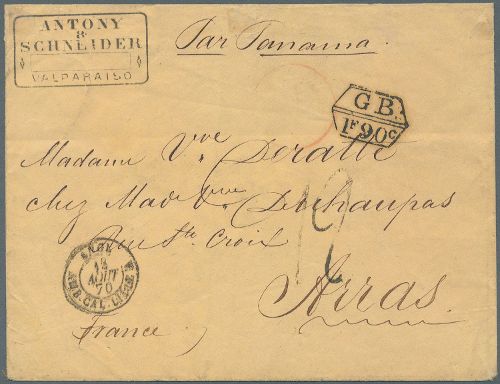 ANTONY
&
SCHNEIDER
VALPARAISO
Par Panama.
G B.
1F90c
Madame Vve Deratte
chez Made Vve Duchaupas
Rue Ste Croix
12
Arras.
France.
ANGL.
13
AOUT
70
AMB. CAL.